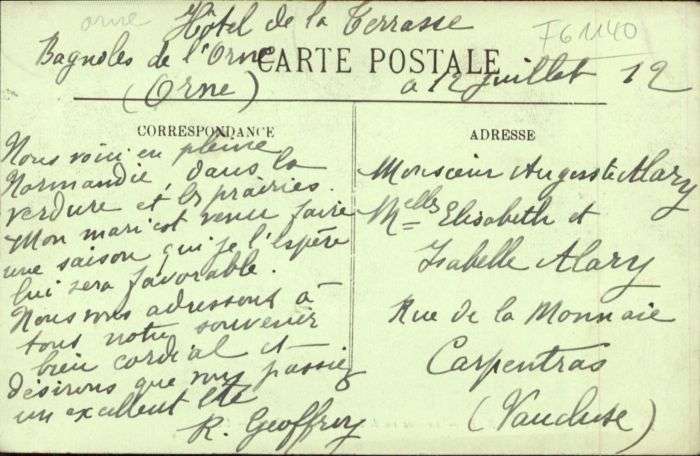 orne
F61140
Hôtel de la Terrasse
Bagnoles de l'Orne
(Orne)
CARTE POSTALE
a 12 juillet 12
CORRESPONDANCE
Nous voici en pleine
Normandie, dans la
verdure et les prairies.
Mon mari est venu faire
une saison qui je l'espère
lui sera favorable.
Nous vous adressons à
tous notre souvenir
bien cordial et
désirons que vous passiez
un excellent été
R. Geoffroy
ADRESSE
Monsieur Auguste Alary
Melles Elisabeth et
Isabelle Alary
Rue de la Monnaie
Carpentras
(Vaucluse)